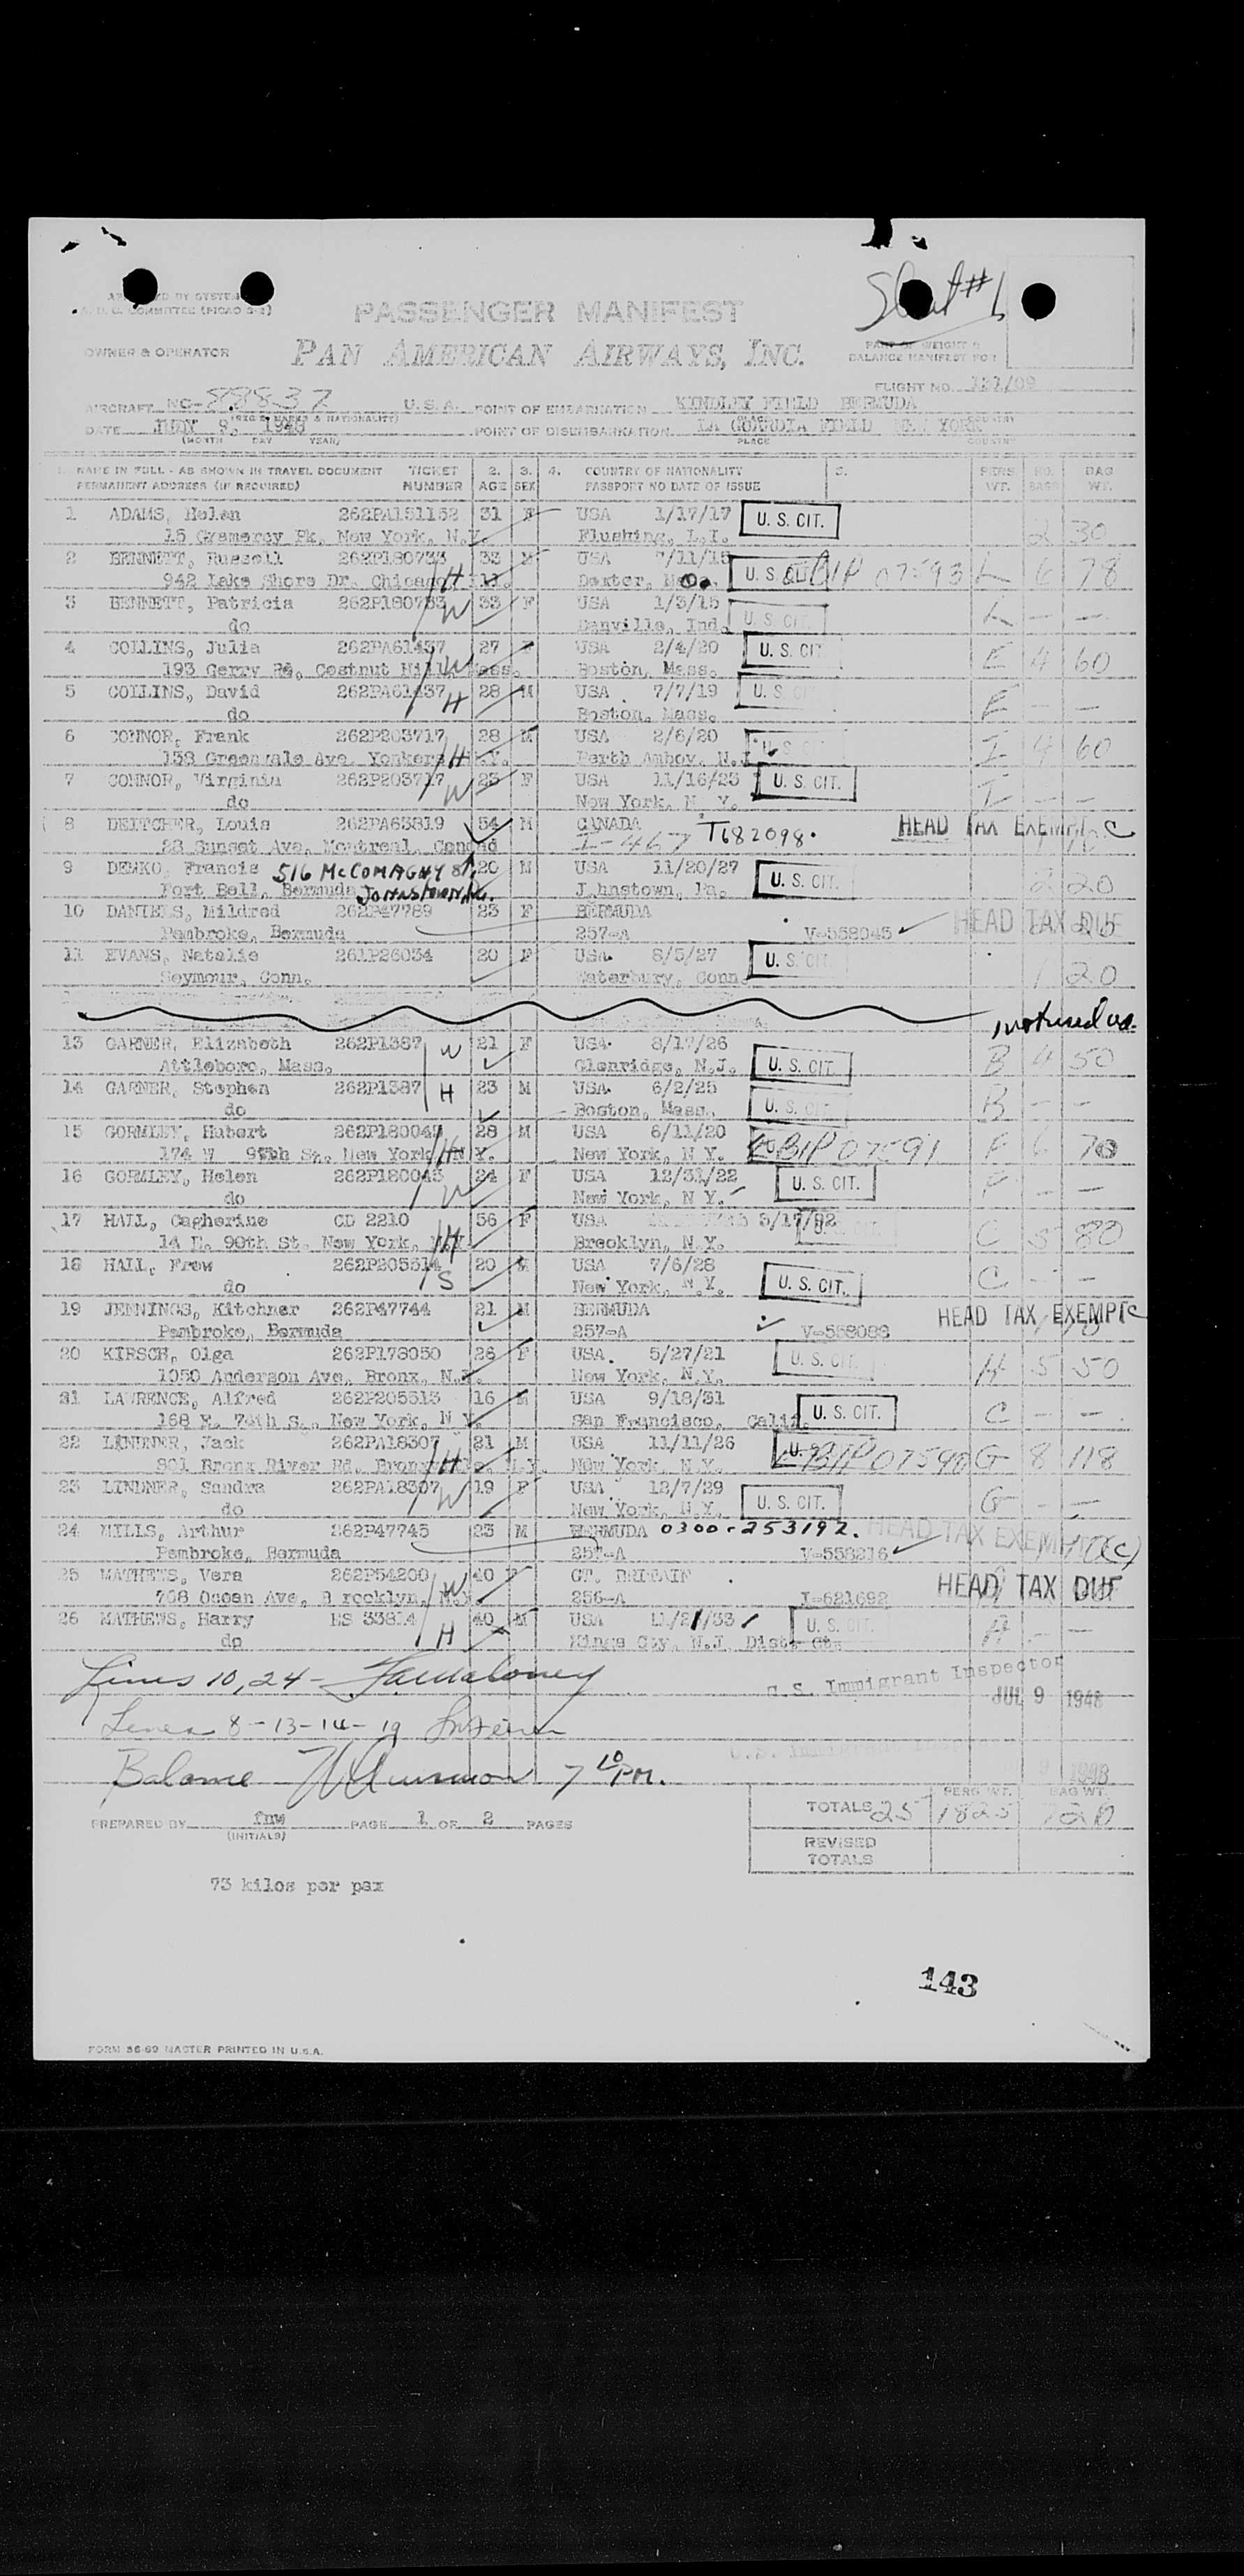 Sheet #1
PASSENGER MANIFEST
OWNER & OPERATOR PAN AMERICAN AIRWAYS, INC.
PART OF WEIGHT &
BALANCE MANIFEST FOR
FLIGHT NO. 131/09
AIRCRAFT NC-88837 U.S.A. POINT OF EMBARKATION KINDLEY FIELD BERMUDA
DATE JULY 9, 1948 POINT OF DISEMBARKATION LA GUARDIA FIELD NEW YORK
(MONTH DAY YEAR) PLACE COUNTRY
1. NAME IN FULL - AS SHOWN IN TRAVEL DOCUMENT TICKET 2. 3. 4. COUNTRY OF NATIONALITY 5. PERS NO. BAG
PERMANENT ADDRESS (IF REQUIRED) NUMBER AGE SEX PASSPORT NO DATE OF ISSUE WT. BAGS WT.
1 ADAMS, Helen 262PA151152 31 F USA 1/17/17 U. S. CIT.
15 Gramercy Pk, New York, N.Y. Flushing, L.I. 2 30
2 BENNETT, Russell 262P180733 33 M USA 7/11/15
942 Lake Shore Dr. Chicago H Ill. Dexter, Mo. U. S. CIT. BIP 07593 L 6 78
3 BENNETT, Patricia 262P180733 W 33 F USA 1/3/15
do Danville, Ind. U. S. CIT. L - -
4 COLLINS, Julia 262PA61437 27 F USA 2/4/20 U. S. CIT.
193 Gerry Rd, Cestnut Hill, W Mass. Boston, Mass. E 4 60
5 COLLINS, David 262PA61437 H 28 M USA 7/7/19 U. S. CIT.
do Boston, Mass. E - -
6 CONNOR, Frank 262P203717 28 M USA 2/6/20 U. S. CIT.
138 Greenvale Ave. Yonkers H N.Y. Perth Amboy, N.J. I 4 60
7 CONNOR, Virginia 262P203717 W 25 F USA 11/16/23 U. S. CIT.
do New York, N. Y. I - -
8 DEITCHER, Louis 262PA63819 54 M CANADA T682098. HEAD TAX EXEMPT C
28 Sunset Ave, Montreal, Canada I-467
9 DEMKO, Francis 516 McCOMAGHY ST. 20 M USA 11/20/27 U. S. CIT.
Fort Bell, Bermuda JOHNSTOWN, PA. J.hnstown, Pa. 2 20
10 DANIELS, Mildred 262P47789 23 F BERMUDA HEAD TAX DUE
Pembroke, Bermuda 257-A V-558045
11 EVANS, Natalie 261P26034 20 F USA 8/5/27 U. S. CIT.
Seymour, Conn. Waterbury, Conn. 1 20
not used
13 GARNER, Elizabeth 262P1387 W 21 F USA 8/17/26
Attleboro, Mass. Glenridge, N.J. U. S. CIT. B 4 50
14 GARNER, Stephen 262P1387 H 23 M USA 6/2/25
do Boston, Mass. U. S. CIT. B - -
15 GORMLEY, Hubert 262P180045 28 M USA 6/11/20
174 W 95th St. New York H N Y. New York, N Y. BIP 07591 F 6 70
16 GORMLEY, Helen 262P180045 W 24 F USA 12/31/22 U. S. CIT.
do New York, N Y. F - -
17 HALL, Cagherine CD 2210 56 F USA 5/17/92 U. S. CIT.
14 E. 90th St. New York, N.Y. H Brooklyn, N.Y. C 5 80
18 HALL, Frew 262P205514 S 20 M USA 7/6/28
do New York, N.Y. U. S. CIT. C - -
19 JENNINGS, Kitchner 262P47744 21 M BERMUDA HEAD TAX EXEMPT C
Pembroke, Bermuda 257-A V-558088
20 KIRSCH, Olga 262P178050 26 F USA 5/27/21 U. S. CIT.
1050 Anderson Ave, Bronx, N.Y. New York, N.Y. H 5 50
21 LAWRENCE, Alfred 262P205513 16 M USA 9/18/31 U. S. CIT.
168 E. 74th S., New York, N Y. San Francisco, Calif. C - -
22 LINDNER, Jack 262PA18307 21 M USA 11/11/26
801 Bronx River Rd. Bronxville, H N.Y. New York, N.Y. BIP 07590 G 8 118
23 LINDNER, Sandra 262PA18307 W 19 F USA 12/7/29
do New York, N.Y. U. S. CIT. G - -
24 MILLS, Arthur 262P47745 23 M BERMUDA 0300-253192. HEAD TAX EXEMPT (C)
Pembroke, Bermuda 257-A V-558216
25 MATHEWS, Vera 262P54200 W 40 F GT. BRITAIN
708 Ocean Ave, B rooklyn, N.Y. 256-A I-621692 HEAD TAX DUE
26 MATHEWS, Harry BS 33814 H 40 M USA 11/21/33 U. S. CIT.
do Kings Cty, N.J. Distr Ct. A - -
Lines 10, 24 - Maloney
U.S. Immigrant Inspector
JUL 9 1948
Lines 8-13-14-19
Balance 7 10 PM.
9 1948
PERS WT. BAG WT.
TOTALS 25 1825 720
PREPARED BY fnw PAGE 1 OF 2 PAGES
(INITIALS)
REVISED
TOTALS
73 kilos per pax
143
FORM 36-69 MASTER PRINTED IN U.S.A.